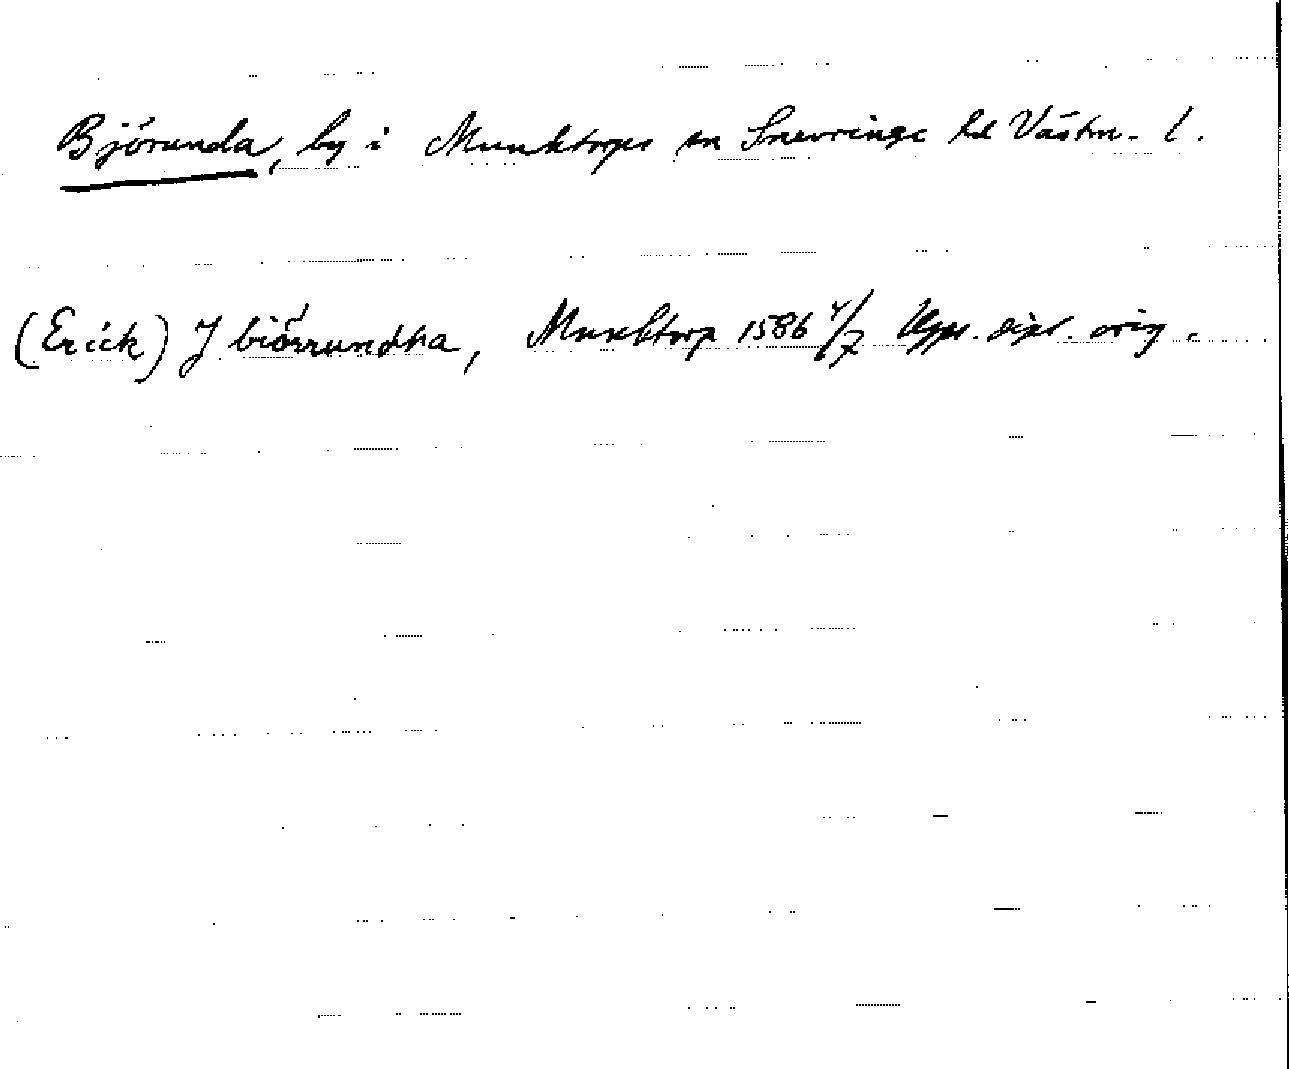 Björunda, by i Munktorps sn Snevringe hd Västm. l.
(Erick) J biörrundha, Munktorp 1586 4/7 Upps. dipl. orig.